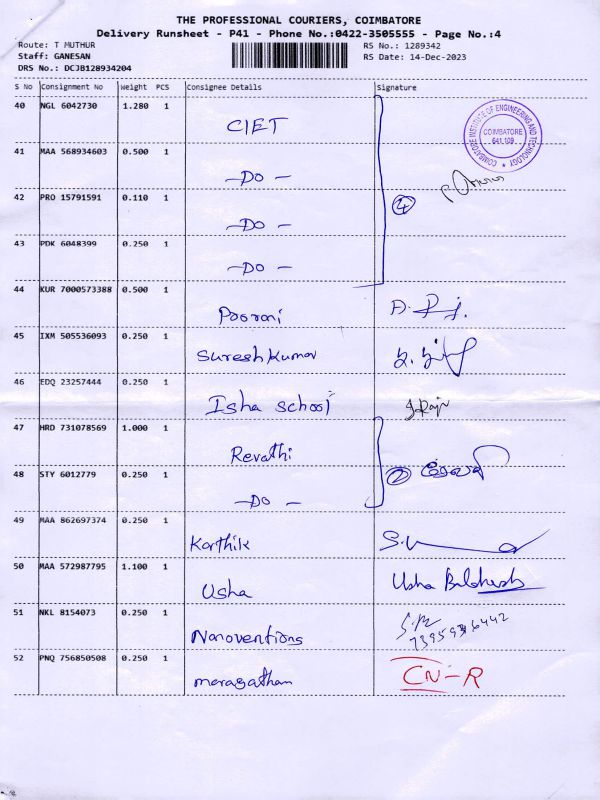 THE PROFESSIONAL COURIERS, COIMBATORE
Delivery Runsheet - P41 - Phone No.:0422-3505555 - Page No.:4
Route: T MUTHUR RS No.: 1289342
Staff: GANESAN RS Date: 14-Dec-2023
DRS No.: DCJB128934204
S No Consignment No Weight PCS Consignee Details Signature
40 NGL 6042730 1.280 1 CIET
COIMBATORE INSTITUTE OF ENGINEERING AND TECHNOLOGY
COIMBATORE
641 109
41 MAA 568934603 0.500 1 -DO-
42 PRO 15791591 0.110 1 -DO- 4
43 PDK 6048399 0.250 1 -DO-
44 KUR 7000573388 0.500 1 Poorani
45 IXM 505536093 0.250 1 Sureshkumar
46 EDQ 23257444 0.250 1 Isha school J.Raji
47 HRD 731078569 1.000 1 Revathi
48 STY 6012779 0.250 1 -DO- 2 ரேவதி
49 MAA 862697374 0.250 1 Karthik
50 MAA 572987795 1.100 1 Usha Usha Balakrish
51 NKL 8154073 0.250 1 Nanoventions
52 PNQ 756850508 0.250 1 maragatham CN-R